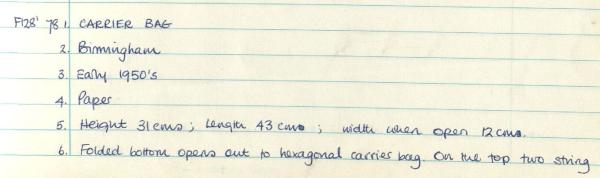 F128' 78 1. CARRIER BAG
2. Birmingham
3. Early 1950's
4. Paper
5. Height 31cms; Length 43 cms; width when open 12 cms.
6. Folded bottom opens out to hexagonal carrier bag. On the top two string